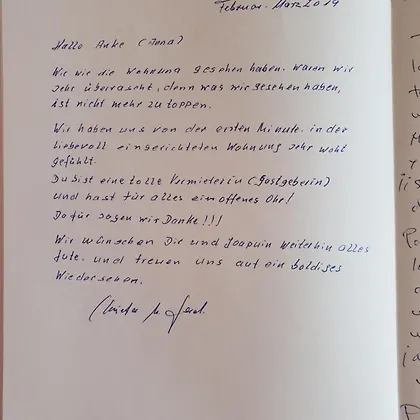 Februar - März 2019
Hallo Anke (Jona)
Wie wir die Wohnung gesehen haben, waren wir
sehr überrascht, denn was wir gesehen haben,
ist nicht mehr zu toppen.
Wir haben uns von der ersten Minute, in der
liebevoll eingerichteten Wohnung sehr wohl
gefühlt.
Du bist eine tolle Vermieterin (Gastgeberin)
und hast für alles ein offenes Ohr!
Dafür sagen wir Danke!!!
Wir wünschen Die und Joaquin weiterhin alles
Gute, und freuen uns auf ein baldiges
Wiedersehen.